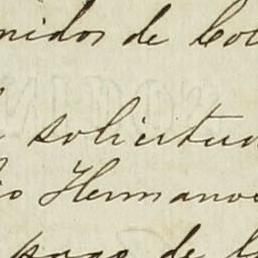 nidos de Co
solicitud
io Hermanos
pago de l